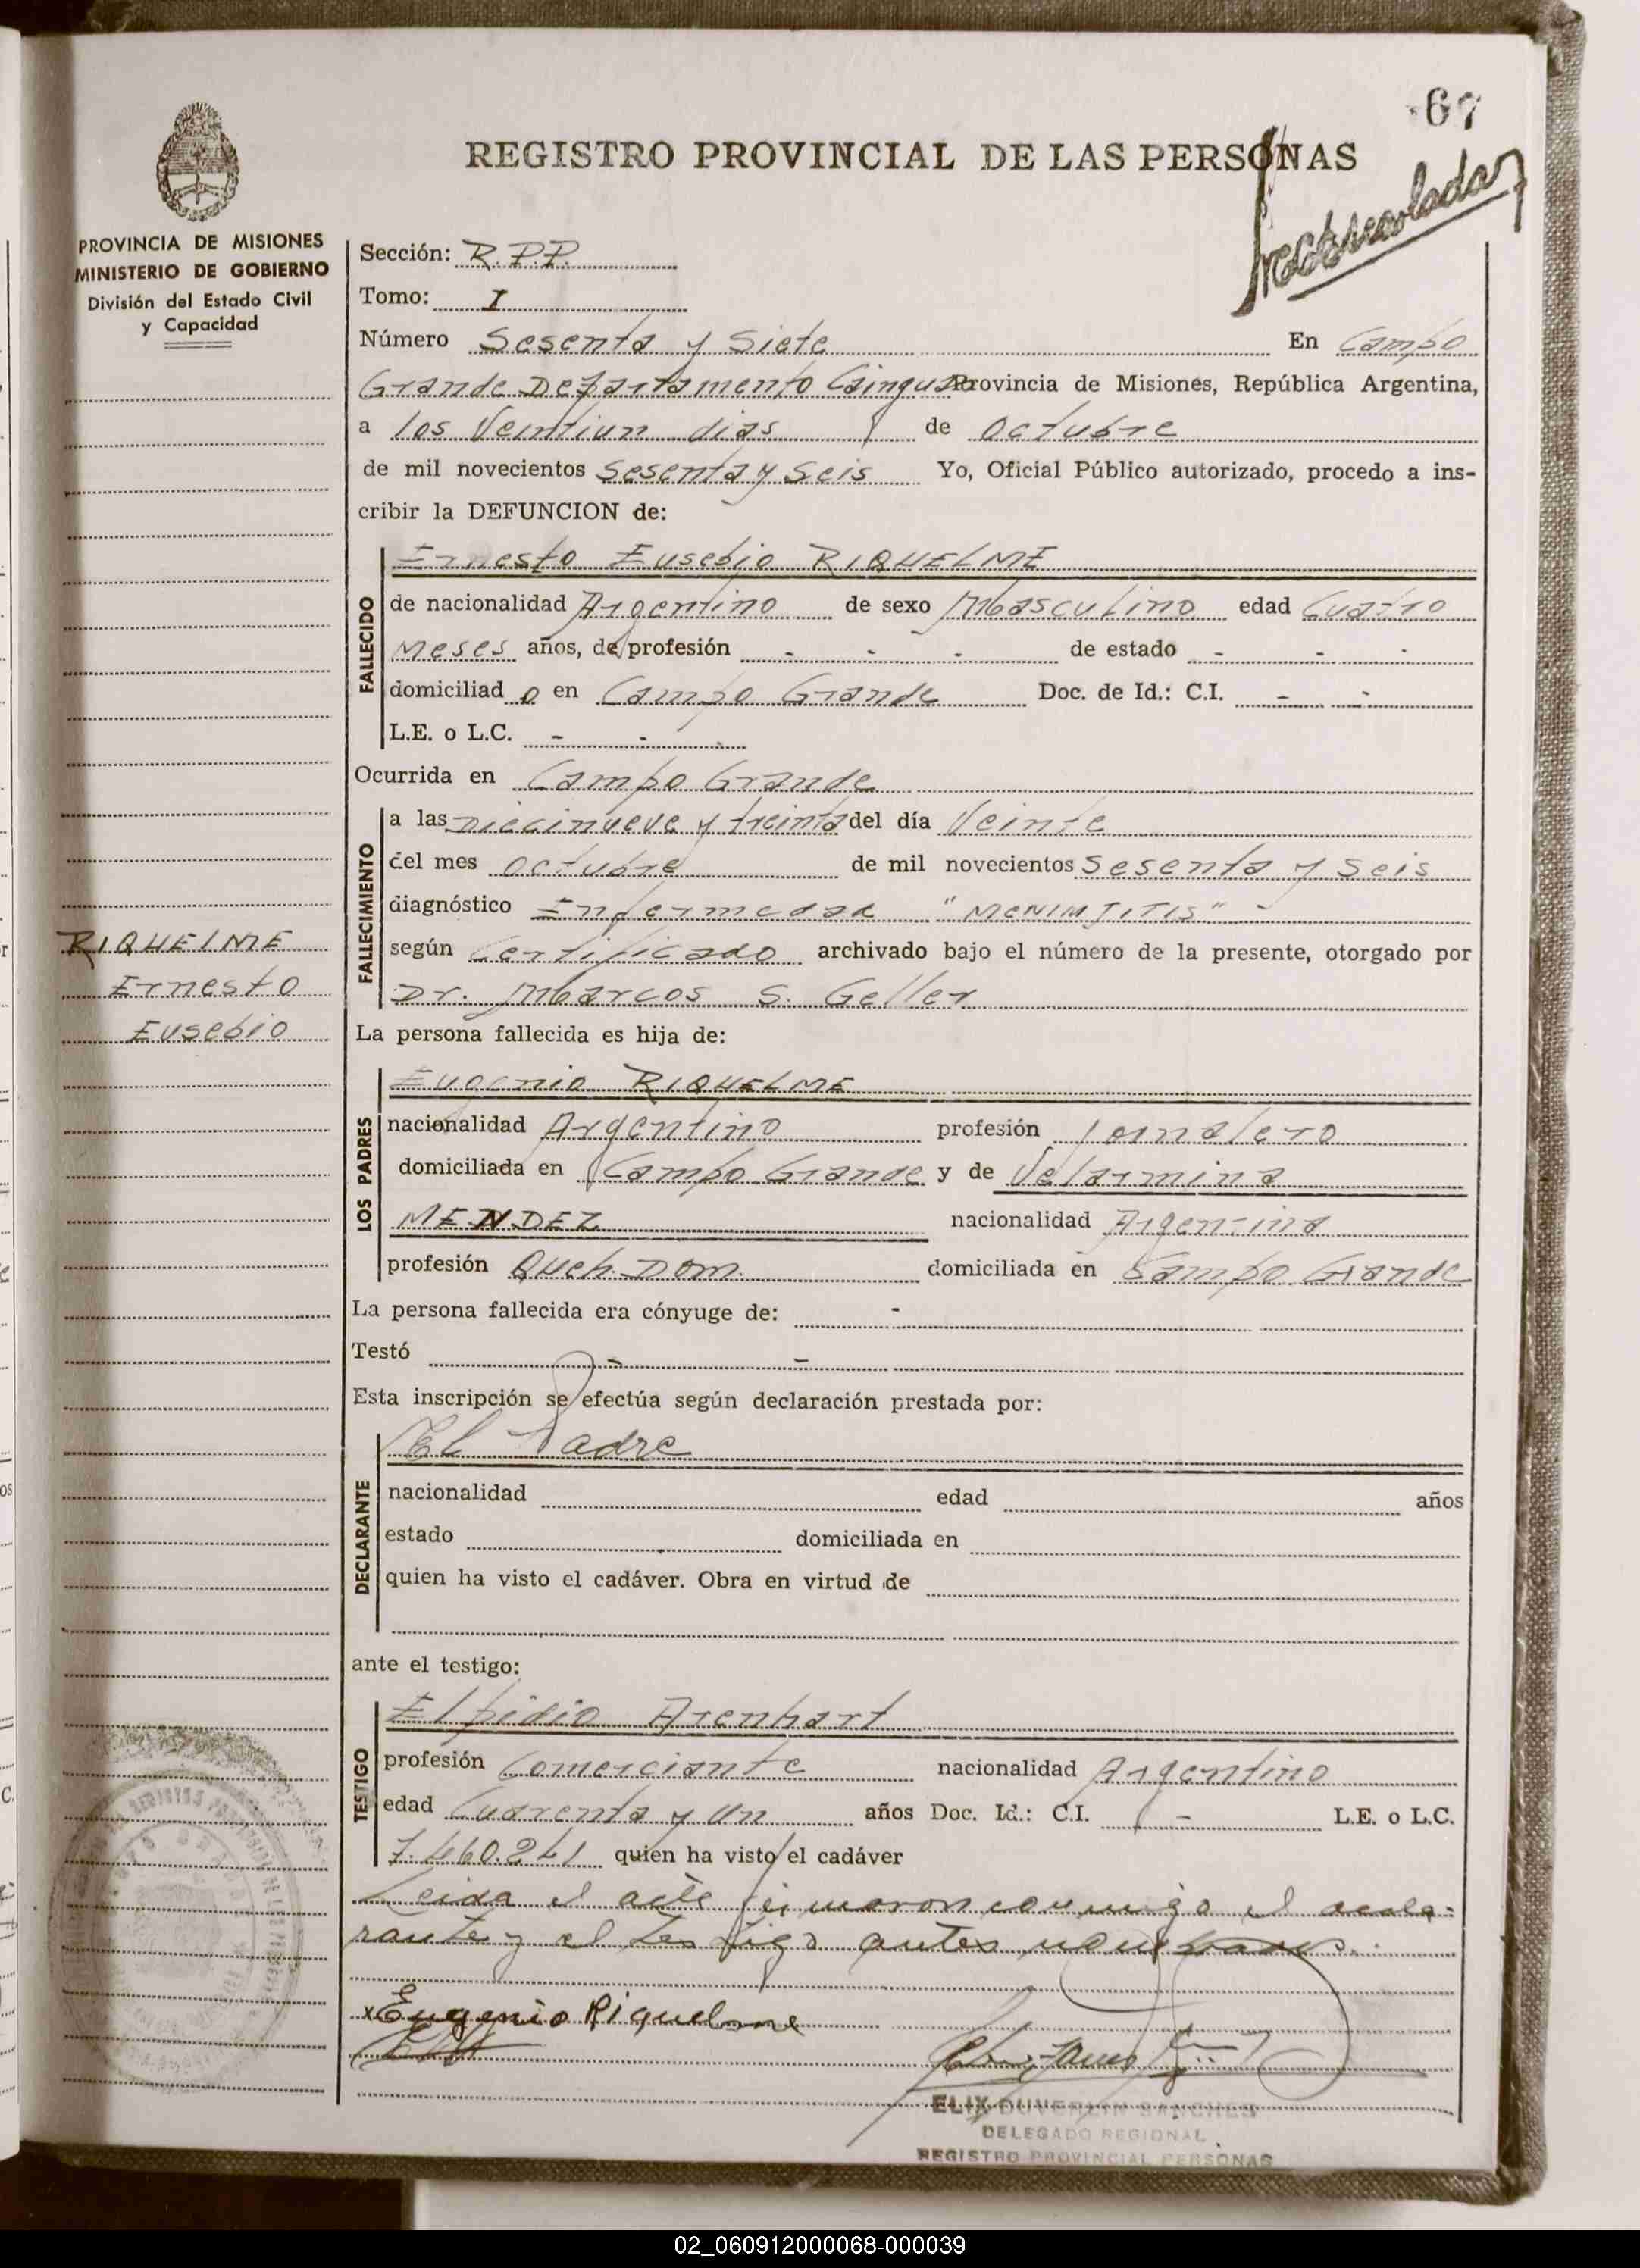 67
REGISTRO PROVINCIAL DE LAS PERSONAS
PROVINCIA DE MISIONES
MINISTERIO DE GOBIERNO
División del Estado Civil
y Capacidad
RIQUELME
Ernesto
Eusebio
Sección: R.P.P.
Tomo: I
Número Sesenta y Siete En Campo
Grande Departamento Cainguas Provincia de Misiones, República Argentina,
a los Veintiun dias de Octubre
de mil novecientos Sesenta y Seis Yo, Oficial Público autorizado, procedo a ins-
cribir la DEFUNCION de:
FALLECIDO
Ernesto Eusebio RIQUELME
de nacionalidad Argentino de sexo Masculino edad Cuatro
Meses años, de profesión - - - de estado - - -
domiciliad o en Campo Grande Doc. de Id.: C.I. - -
L.E. o L.C. - - -
Ocurrida en Campo Grande
FALLECIMIENTO
a las Diecinueve y treinta del día Veinte
del mes Octubre de mil novecientos Sesenta y Seis
diagnóstico Enfermedad "MENIMJITIS" -
según Certificado archivado bajo el número de la presente, otorgado por
Dr. Marcos S. Geller
La persona fallecida es hija de:
LOS PADRES
Eugenio RIQUELME
nacionalidad Argentino profesión Jornalero
domiciliada en Campo Grande y de Velarmina
MENDEZ nacionalidad Argentina
profesión Queh. Dom. domiciliada en Campo Grande
La persona fallecida era cónyuge de: -
Testó - -
Esta inscripción se efectúa según declaración prestada por:
DECLARANTE
El Padre
nacionalidad edad años
estado domiciliada en
quien ha visto el cadáver. Obra en virtud de
ante el testigo:
TESTIGO
Elpidio Arenhart
profesión Comerciante nacionalidad Argentino
edad Cuarenta y Un años Doc. Id.: C.I. - L.E. o L.C.
7.460.241 quien ha visto el cadáver
Leida el acta firmaron conmigo el decla-
rante y el testigo antes nombrados.
x Eugenio Riquelme
ELIX DUVERLIN SANCHES
DELEGADO REGIONAL
REGISTRO PROVINCIAL PERSONAS
02_060912000068-000039